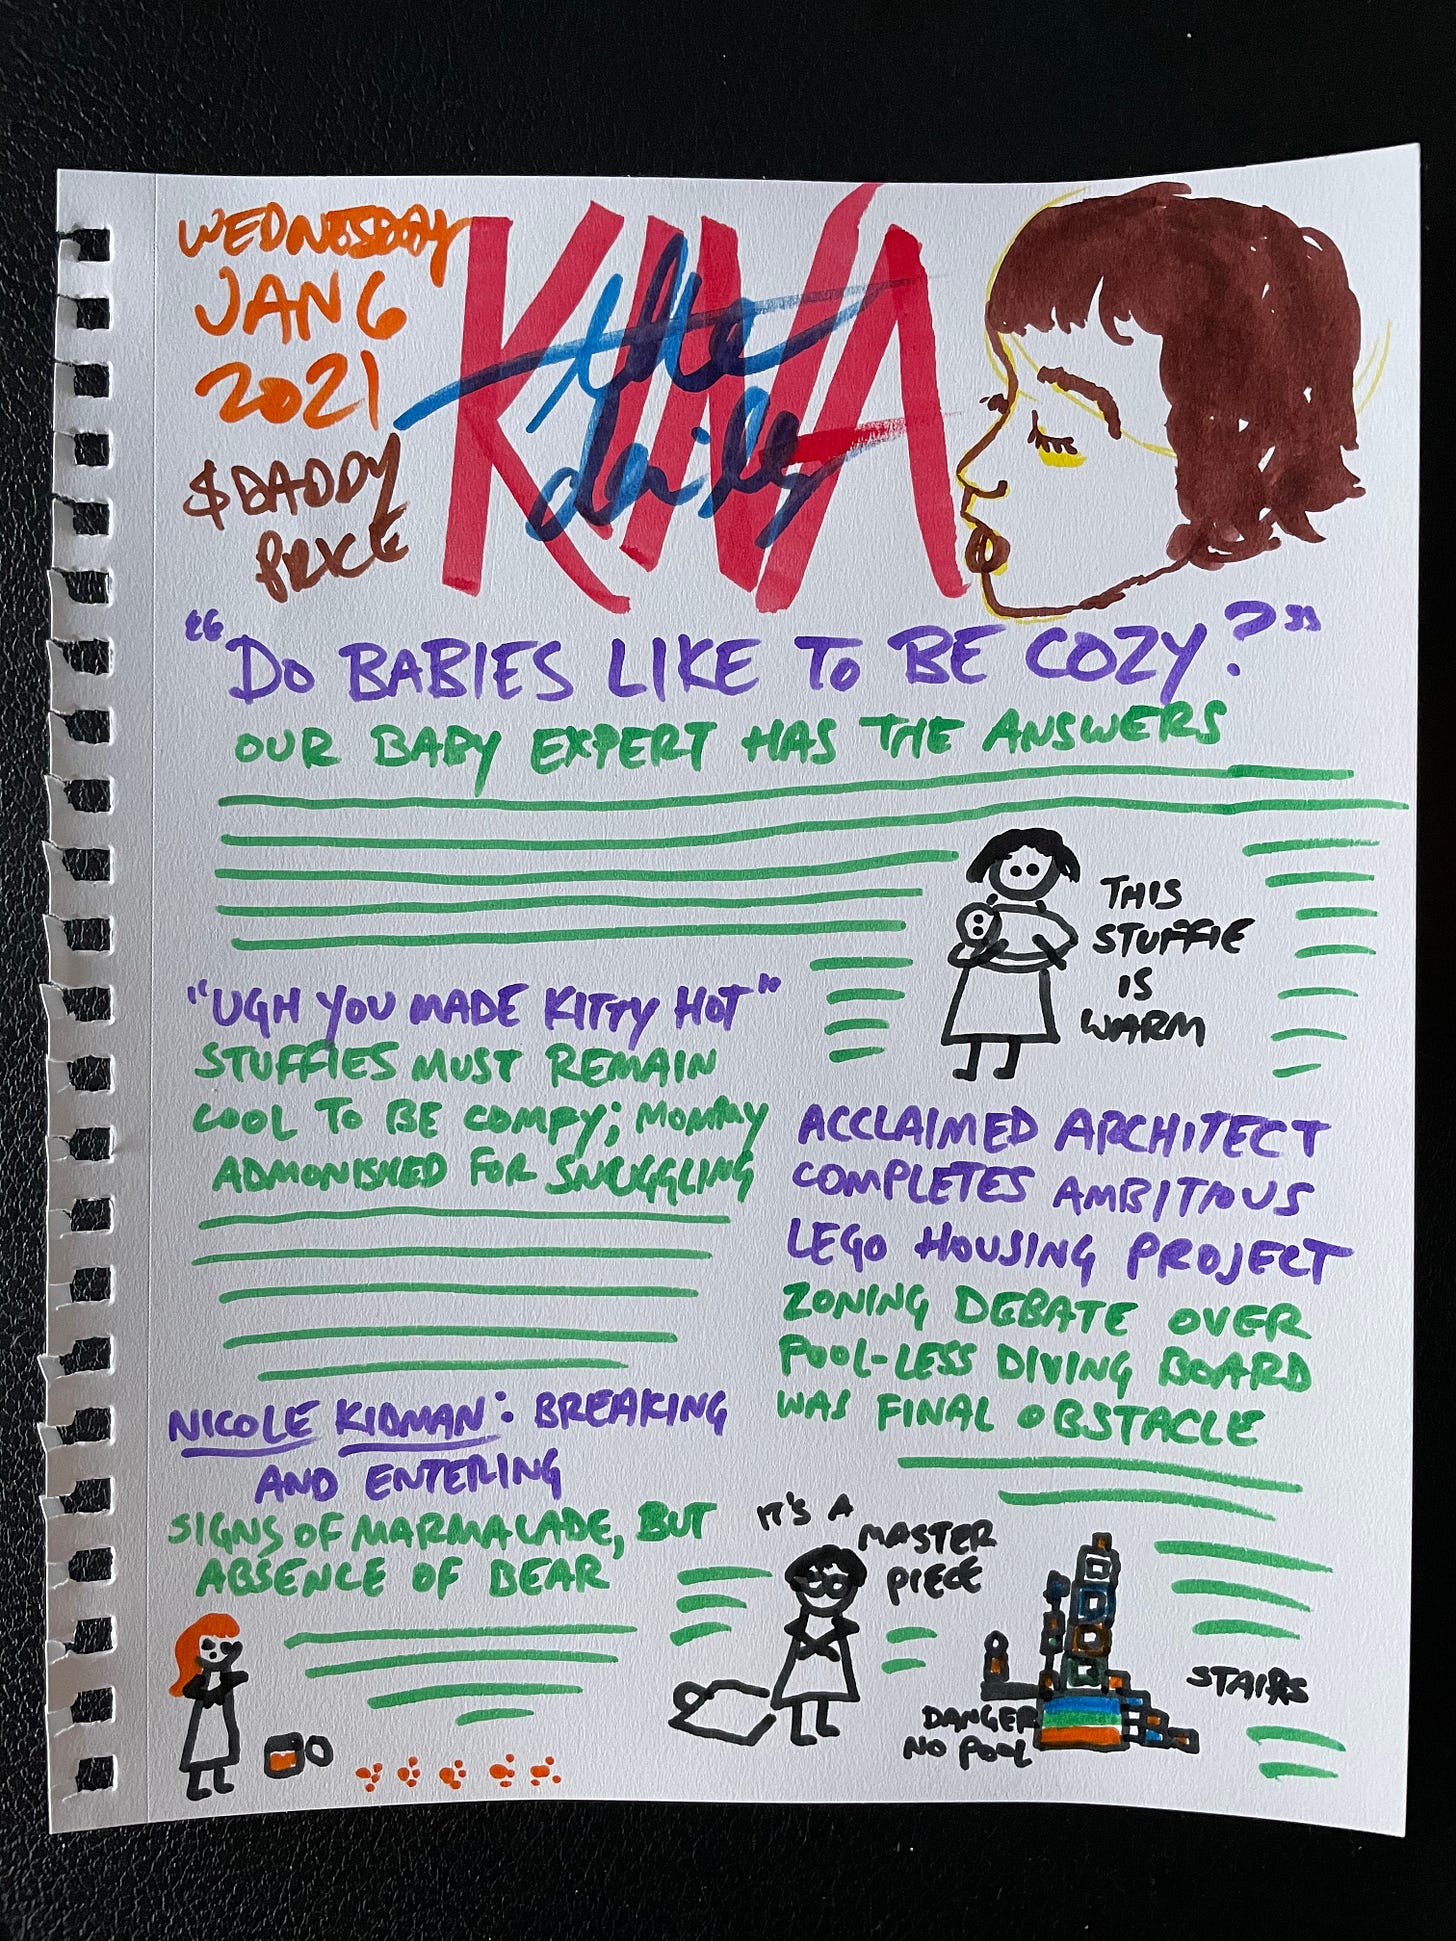 WEDNESDAY
JAN 6
2021
$DADDY
PRICE
the
daily
KINA
"DO BABIES LIKE TO BE COZY?"
OUR BABY EXPERT HAS THE ANSWERS
THIS
STUFFIE
IS
WARM
"UGH YOU MADE KITTY HOT"
STUFFIES MUST REMAIN
COOL TO BE COMFY; MOMMY
ADMONISHED FOR SNUGGLING
ACCLAIMED ARCHITECT
COMPLETES AMBITIOUS
LEGO HOUSING PROJECT
ZONING DEBATE OVER
POOL-LESS DIVING BOARD
WAS FINAL OBSTACLE
NICOLE KIDMAN: BREAKING
AND ENTERING
SIGNS OF MARMALADE, BUT
ABSENCE OF BEAR
IT'S A
MASTER
PIECE
STAIRS
DANGER
NO POOL